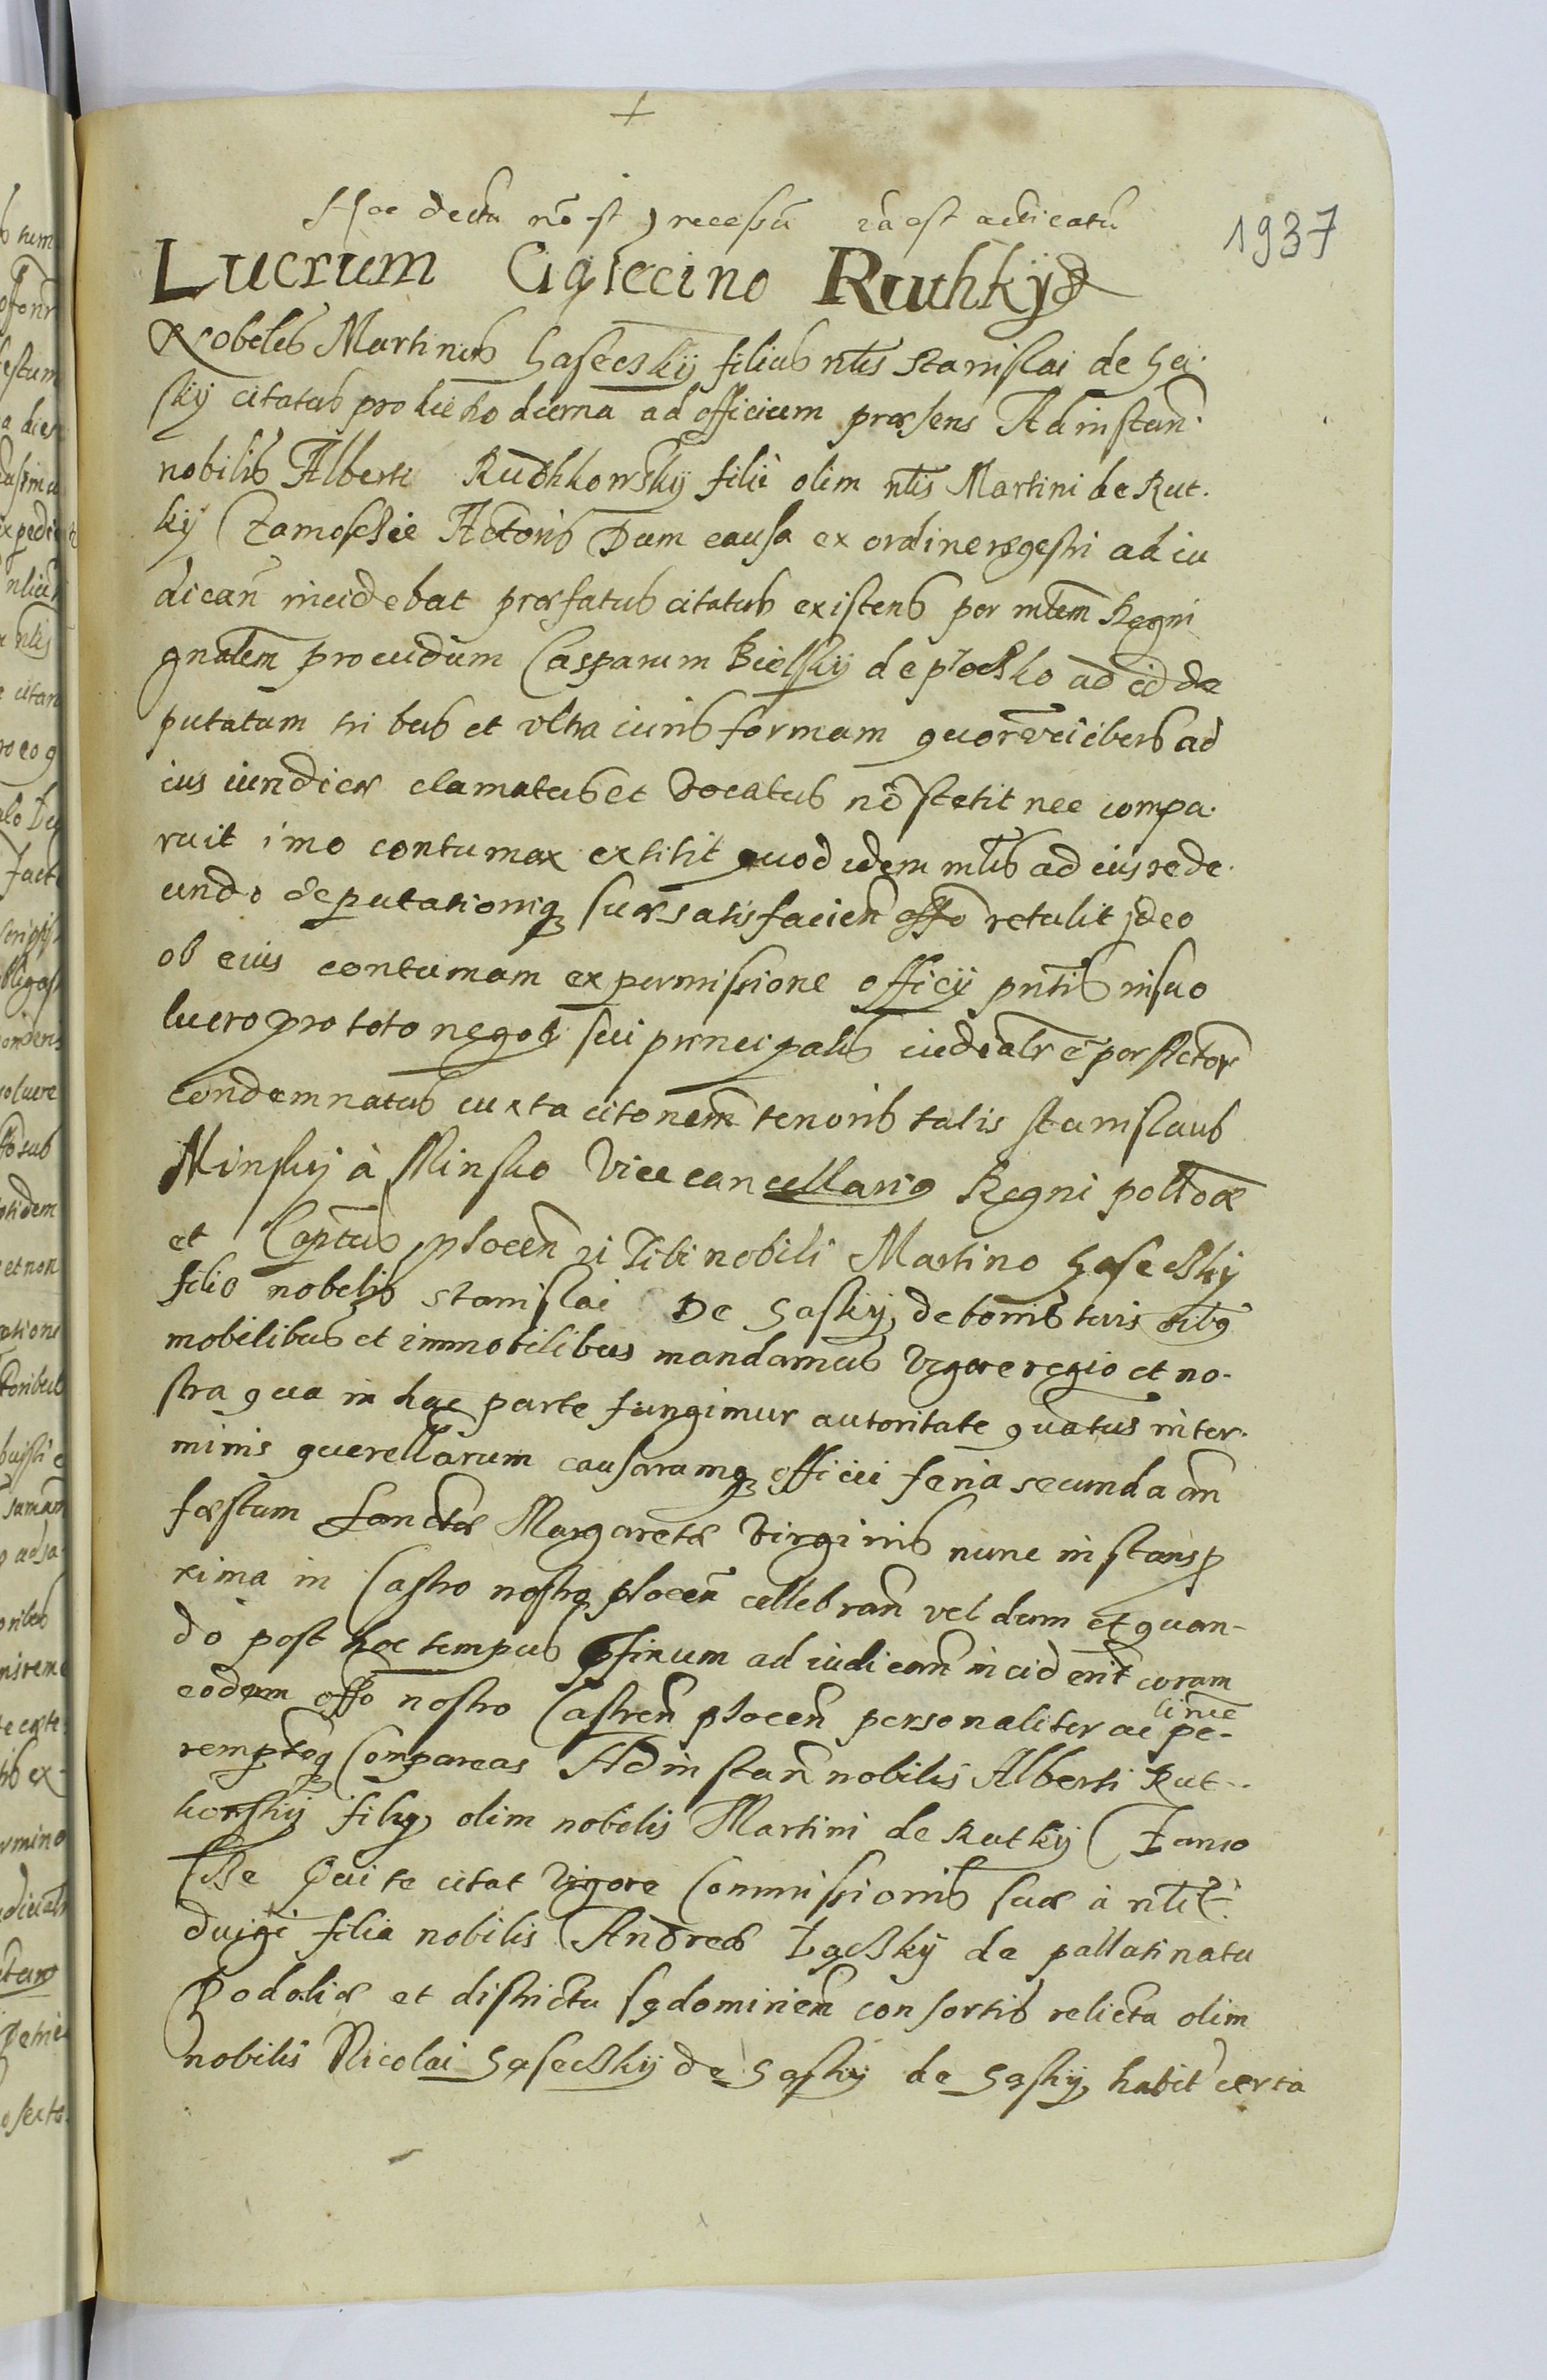 +
Hoc decretum nō est recessū est adiudicatū
1937
Lucrum Gąsecino Ruthkÿ
Nobilis Martinus Gąsecskÿ filius nlis Stanislai de Gą.
skÿ citatus pro die hodierna ad officium præsens Ad instan.
nobilis Alberti Rudkkowskÿ filii olim nlis Martini de Rut.
kÿ Czamoskie Actoris Dum causa ex ordine regestri ad iu
dican̄ incidebat præfatus citatus existens per mlem Regni
gnalem procudum Casparum Bielskÿ de ploczko ad id de
putatum tribus et vltra iuris formam vicibus ad
ius iundicæ clamatus et vocatus nō stetit nec compa.
ruit imo contumax extitit quod idem mlis ad eius rede.
undo deputationiq suæ satisfacien̄ offo retulit jdeo
ob eius contumam ex permissione officÿ pntis in suo
lucro pro toto negoti sui principalis iudicialr ē per Actor
condemnatus iuxta citonem tenoris talis Stanislaus
Minskÿ à Minsko Vicecancellari9 Regni poltoæ
et Captus plocen̄ Tibi nobili Martino Gąseczkÿ
filio nobelis Stanislai De Gąskÿ, de bonis tuis oib9
mobilibus et immobilibus mandamus Vigore regio et no-
stra qua in hac parte fungimur autoritate quatus in ter.
minis querellarum causarumq officii feria secunda an̄
fæstum Sanctæ Margaretæ Virginis nunc instans p
xima in Castro nostro plocen̄ cellebran̄ vel dum et quan-
do post hoc tempus pfixum ad iudican̄ inciderit coram
eodem offo nostro Castren̄ plocen̄ personaliter ac pe-
remptoq Compareas Ad instan̄ nobilis Alberti Rut-
kowskÿ filÿ, olim nobelis Martini de Rutkÿ Czamo
skie Qui te citat Vigore Commissionis suæ à nli
duigi filia nobilis Andreæ Łączkÿ de pallatinatu
Podoliæ et districtu sędomirien̄ consortis relicta olim
nobilis Nicolai Gąseczkÿ de Gąskÿ de Gąskÿ, habit certa